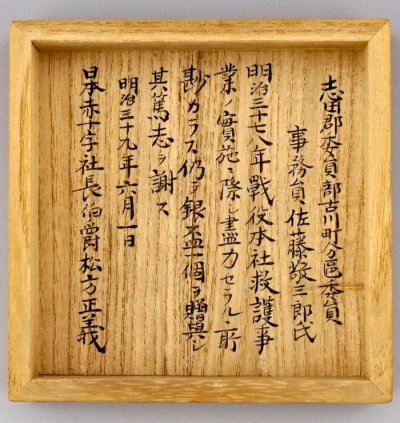 志田郡委員部古川町分區委員
事務員佐藤敬三郎氏
明治三十七八年戰役本社救護事
業ノ實施ニ際シ盡力セラルヽ所
尠カラス仍テ銀盃一個ヲ贈與シ
其篤志ヲ謝ス
明治三十九年六月一日
日本赤十字社長伯爵松方正義